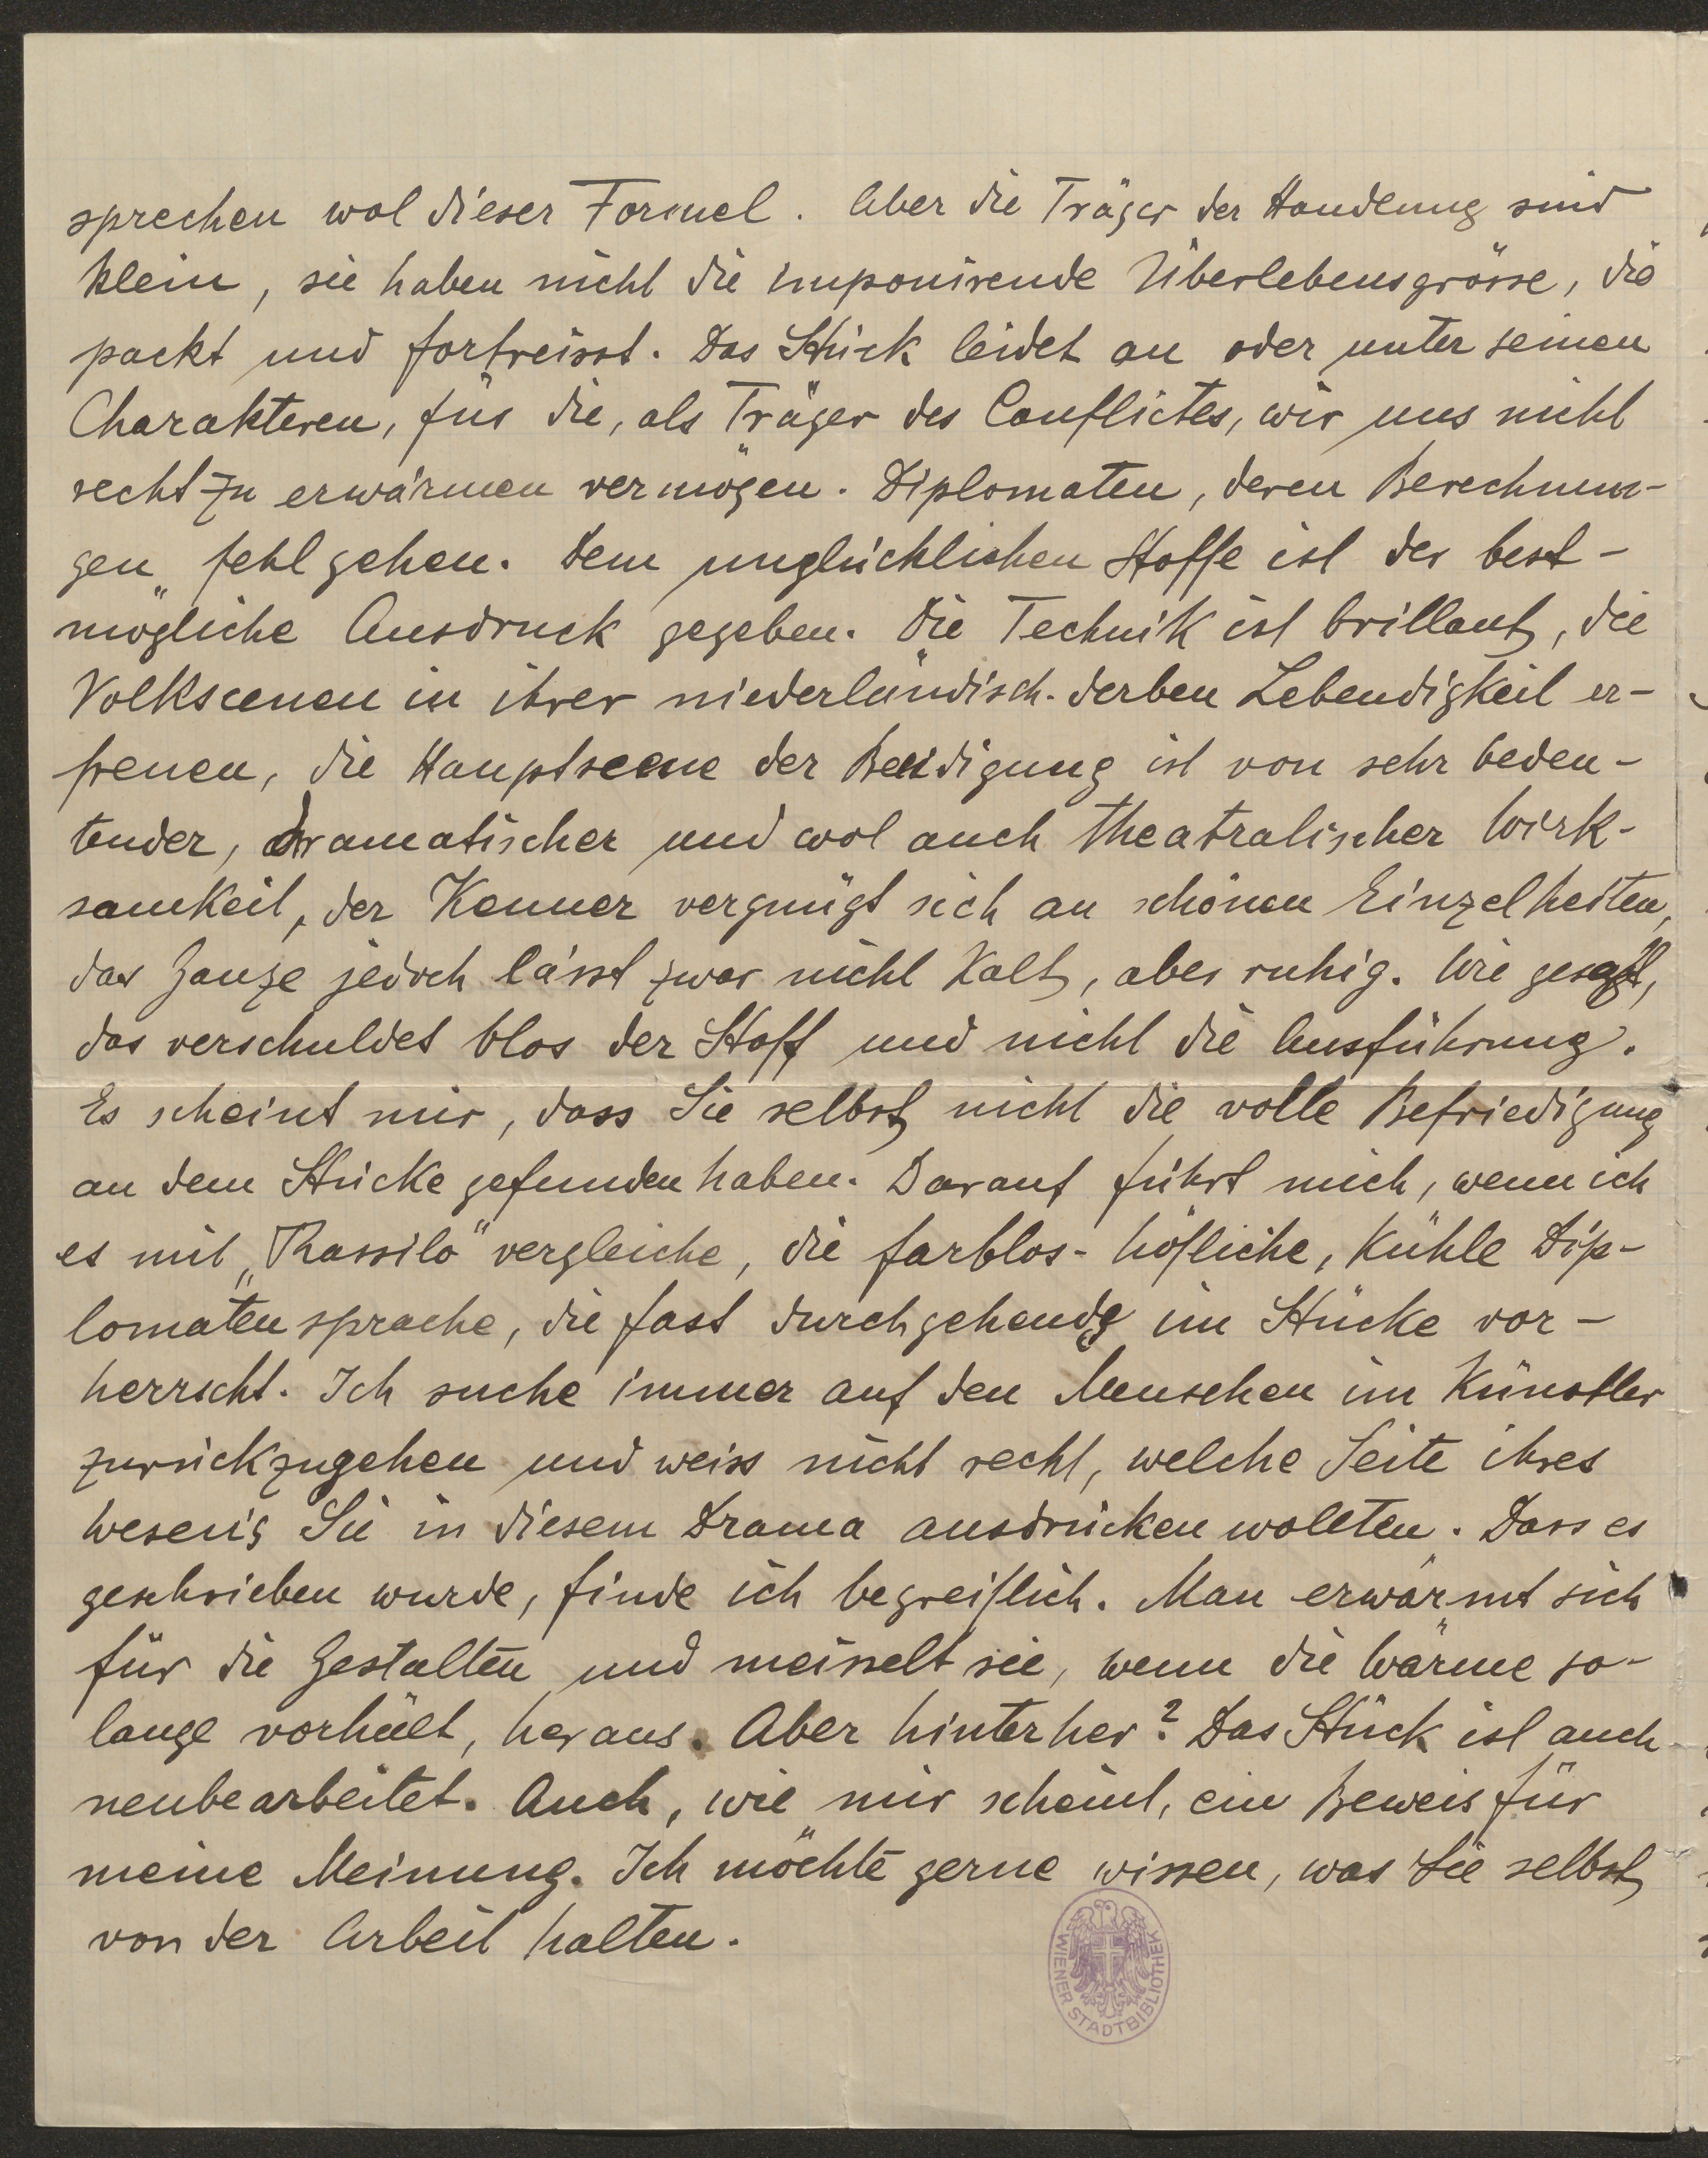 sprechen wol dieser Formel. Aber die Träger der Handlung sind
klein, sie haben nicht die imponirende Überlebensgrösse, die
packt und fortreisst. Das Stück leidet an oder unter seinen
Charakteren, für die, als Träger des Conflictes, wir uns nicht
recht zu erwärmen vermögen. Diplomaten, deren Berechnun-
gen fehl gehen. Dem unglücklichen Stoffe ist der best-
mögliche Ausdruck gegeben. Die Technik ist brillant, die
Volkscenen in ihrer niederländisch-derben Lebendigkeit er-
freuen, die Hauptscene der Beeidigung ist von sehr bedeu-
tender, dramatischer und wol auch theatralischer Wirk-
samkeit, der Kenner vergnügt sich an schönen Einzelheiten,
das Ganze jedoch lässt zwar nicht kalt, aber ruhig. Wie gesagt,
das verschuldet blos der Stoff und nicht die Ausführung.
Es scheint mir, dass Sie selbst nicht die volle Befriedigung
an dem Stücke gefunden haben. Darauf führt mich, wenn ich
es mit „Thassilo" vergleiche, die farblos-höfliche, kühle Dip-
lomatensprache, die fast durchgehends im Stücke vor-
herrscht. Ich suche immer auf den Menschen im Künstler
zurückzugehen und weiss nicht recht, welche Seite ihres
Wesen's Sie in diesem Drama ausdrücken wollten. Dass es
geschrieben wurde, finde ich begreiflich. Man erwärmt sich
für die Gestalten und meisselt sie, wenn die Wärme so-
lange vorhält, heraus. Aber hinterher? Das Stück ist auch
neubearbeitet. Auch, wie mir scheint, ein Beweis für
meine Meinung. Ich möchte gerne wissen, was Sie selbst
von der Arbeit halten.
WIENER STADTBIBLIOTHEK